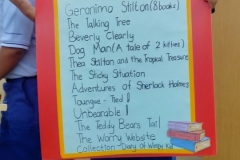 Geronimo Stilton (8 books)
The Talking Tree
Beverly Clearly
Dog Man (A tale of 2 kitties)
Thea Stilton and the Tropical Treasure
The Sticky Situation
Adventures of Sherlock Holmes
Toungue-Tied!
Unbearable!
The Teddy Bears Tail
The Worry Website
Collection - Diary Of Wimpy Kid